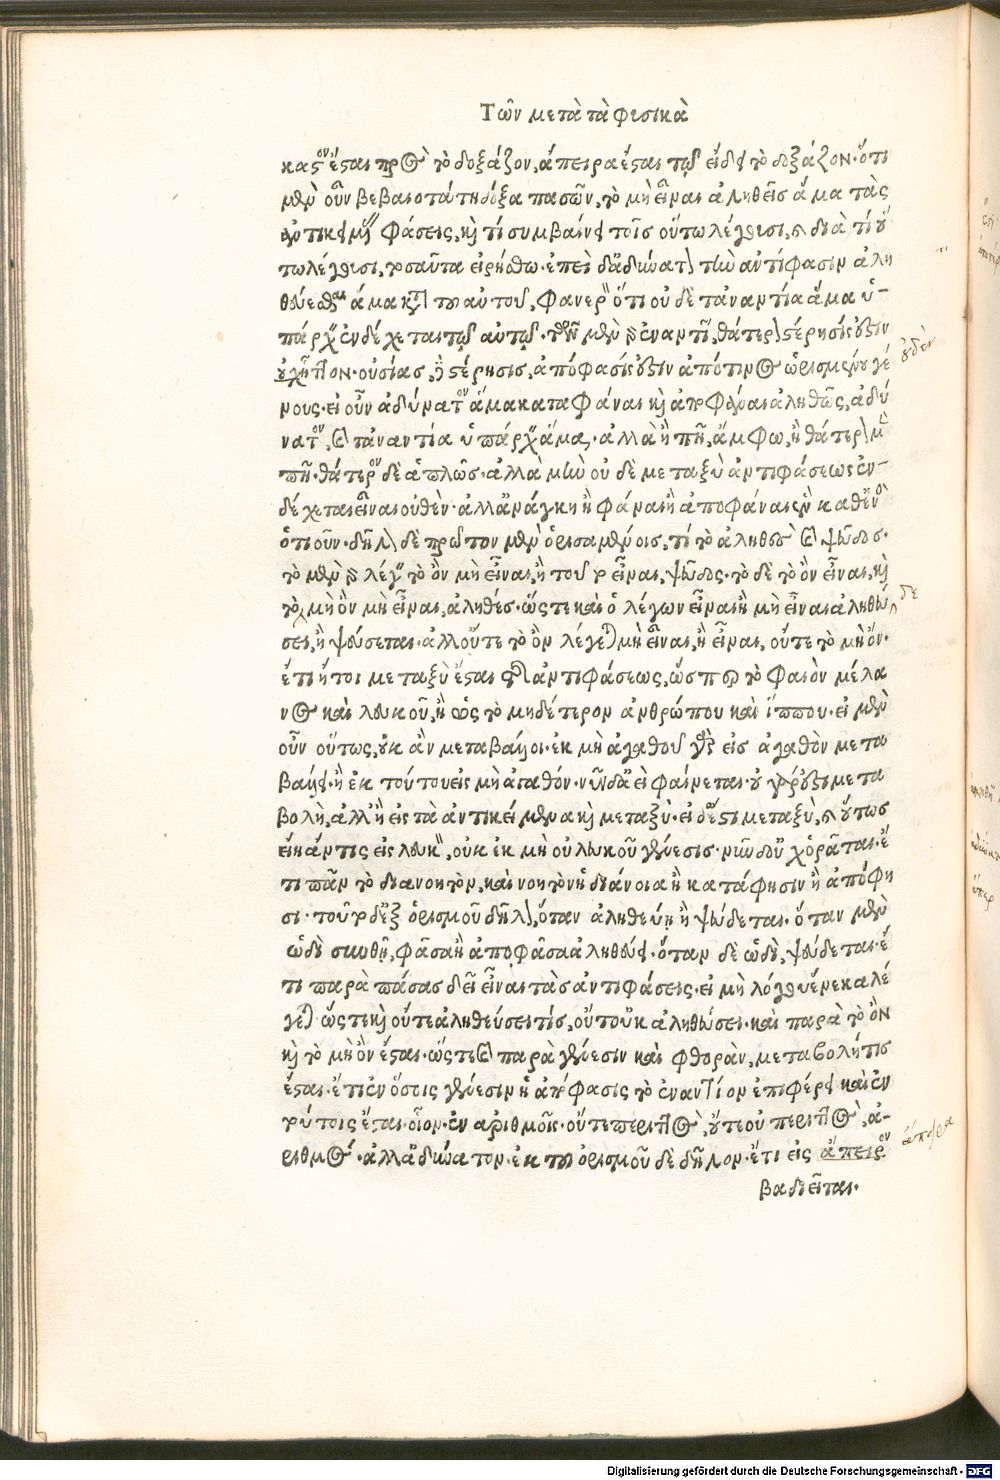 Τῶν μετὰ τὰ φυσικὰ
καστον ἔσται πρὸς τὸ δοξάζον, ἄπειρα ἔσται τῷ εἴδει τὸ δοξάζον· ὅτι
μὲν οὖν βεβαιοτάτη δόξα πασῶν, τὸ μὴ εἶναι ἀληθεῖς ἅμα τὰς
ἀντικειμένας φάσεις, καὶ τί συμβαίνει τοῖς οὕτω λέγουσι, καὶ διὰ τί οὕ
τω λέγουσι, τοσαῦτα εἰρήσθω· ἐπεὶ δ' ἀδύνατον τὴν ἀντίφασιν ἀλη
θεύεσθαι ἅμα κατὰ τοῦ αὐτοῦ, φανερὸν ὅτι οὐδὲ τἀναντία ἅμα ὑ-
πάρχειν ἐνδέχεται τῷ αὐτῷ· τῶν μὲν γὰρ ἐναντίων, θάτερον στέρησίς ἐστιν
οὐχ ἧττον· οὐσίας, ἡ στέρησις, ἀπόφασίς ἐστιν ἀπό τινος ὡρισμένου γέ
οὐδὲν
νους· εἰ οὖν ἀδύνατον ἅμα καταφάναι καὶ ἀποφάναι ἀληθῶς, ἀδύ
νατον καὶ τἀναντία ὑπάρχειν ἅμα, ἀλλ' ἢ πῆ, ἄμφω, ἢ θάτερον μὲν
πῆ· θάτερον δὲ ἁπλῶς· ἀλλὰ μὴν οὐδὲ μεταξὺ ἀντιφάσεως ἐν-
δέχεται εἶναι οὐθέν· ἀλλ' ἀνάγκη ἢ φάναι ἢ ἀποφάναι ἓν καθ' ἑνὸς
ὁτιοῦν· δῆλον δὲ πρῶτον μὲν ὁρισαμένοις, τί τὸ ἀληθὲς καὶ ψεῦδος·
τὸ μὲν γὰρ λέγειν τὸ ὂν μὴ εἶναι, ἢ τοῦτο εἶναι, ψεῦδος· τὸ δὲ τὸ ὂν εἶναι, καὶ
τὸ μὴ ὂν μὴ εἶναι, ἀληθές· ὥστε καὶ ὁ λέγων εἶναι ἢ μὴ εἶναι ἀληθεύ
δε
σει, ἢ ψεύσεται· ἀλλ' οὔτε τὸ ὂν λέγεται μὴ εἶναι, ἢ εἶναι, οὔτε τὸ μὴ ὄν·
ἔτι ἤτοι μεταξὺ ἔσται τῆς ἀντιφάσεως, ὥσπερ τὸ φαιὸν μέλα
νος καὶ λευκοῦ, ἢ ὡς τὸ μηδέτερον ἀνθρώπου καὶ ἵππου· εἰ μὲν
οὖν οὕτως, οὐκ ἂν μεταβάλλοι· ἐκ μὴ ἀγαθοῦ γὰρ εἰς ἀγαθὸν μετα
βάλλει· ἢ ἐκ τούτου εἰς μὴ ἀγαθόν· νῦν δ' ἀεὶ φαίνεται· οὐ γὰρ ἔστι μετα
βολὴ, ἀλλ' ἢ εἰς τὰ ἀντικείμενα καὶ μεταξύ· εἰ δ' ἔστι μεταξὺ, καὶ οὕτως
εἴη ἄν τις εἰς λευκὸν, οὐκ ἐκ μὴ οὐ λευκοῦ γένεσις· νῦν δ' οὐχ ὁρᾶται· ἔ
τι πᾶν τὸ διανοητὸν, καὶ νοητὸν ἡ διάνοια ἢ κατάφησιν ἢ ἀπόφη
σι· τοῦτο δ' ἐξ ὁρισμοῦ δῆλον, ὅταν ἀληθεύῃ ἢ ψεύδεται· ὅταν μὲν
ὡδὶ συνθῇ, φᾶσα ἢ ἀποφᾶσα ἀληθεύει· ὅταν δὲ ὡδὶ, ψεύδεται· ἔ
τι παρὰ πάσας δεῖ εἶναι τὰς ἀντιφάσεις· εἰ μὴ λόγου ἕνεκα λέ
γεται ὥστε καὶ οὔτε ἀληθεύσει τίς, οὔτ' οὐκ ἀληθεύσει· καὶ παρὰ τὸ ὂν
καὶ τὸ μὴ ὂν ἔσται· ὥστε καὶ παρὰ γένεσιν καὶ φθορὰν, μεταβολή τις
ἔσται· ἔτι ἐν ὅσοις γένεσιν ἡ ἀπόφασις τὸ ἐναντίον ἐπιφέρει καὶ ἐν
τούτοις ἔσται· οἷον· ἐν ἀριθμοῖς· οὔτε περιττὸς, οὔτε οὐ περιττὸς, ἀ-
ριθμός· ἀλλ' ἀδύνατον· ἐκ τοῦ ὁρισμοῦ δὲ δῆλον· ἔτι εἰς ἄπειρον
ἄπειρα
βαδιεῖται·
Digitalisierung gefördert durch die Deutsche Forschungsgemeinschaft - DFG